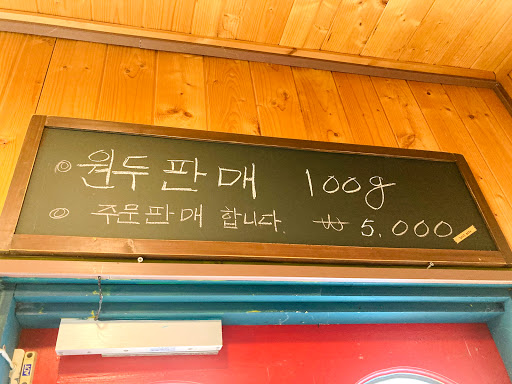 ⊙ 원두판매 100g
⊙ 주문판매 합니다. ₩ 5,000